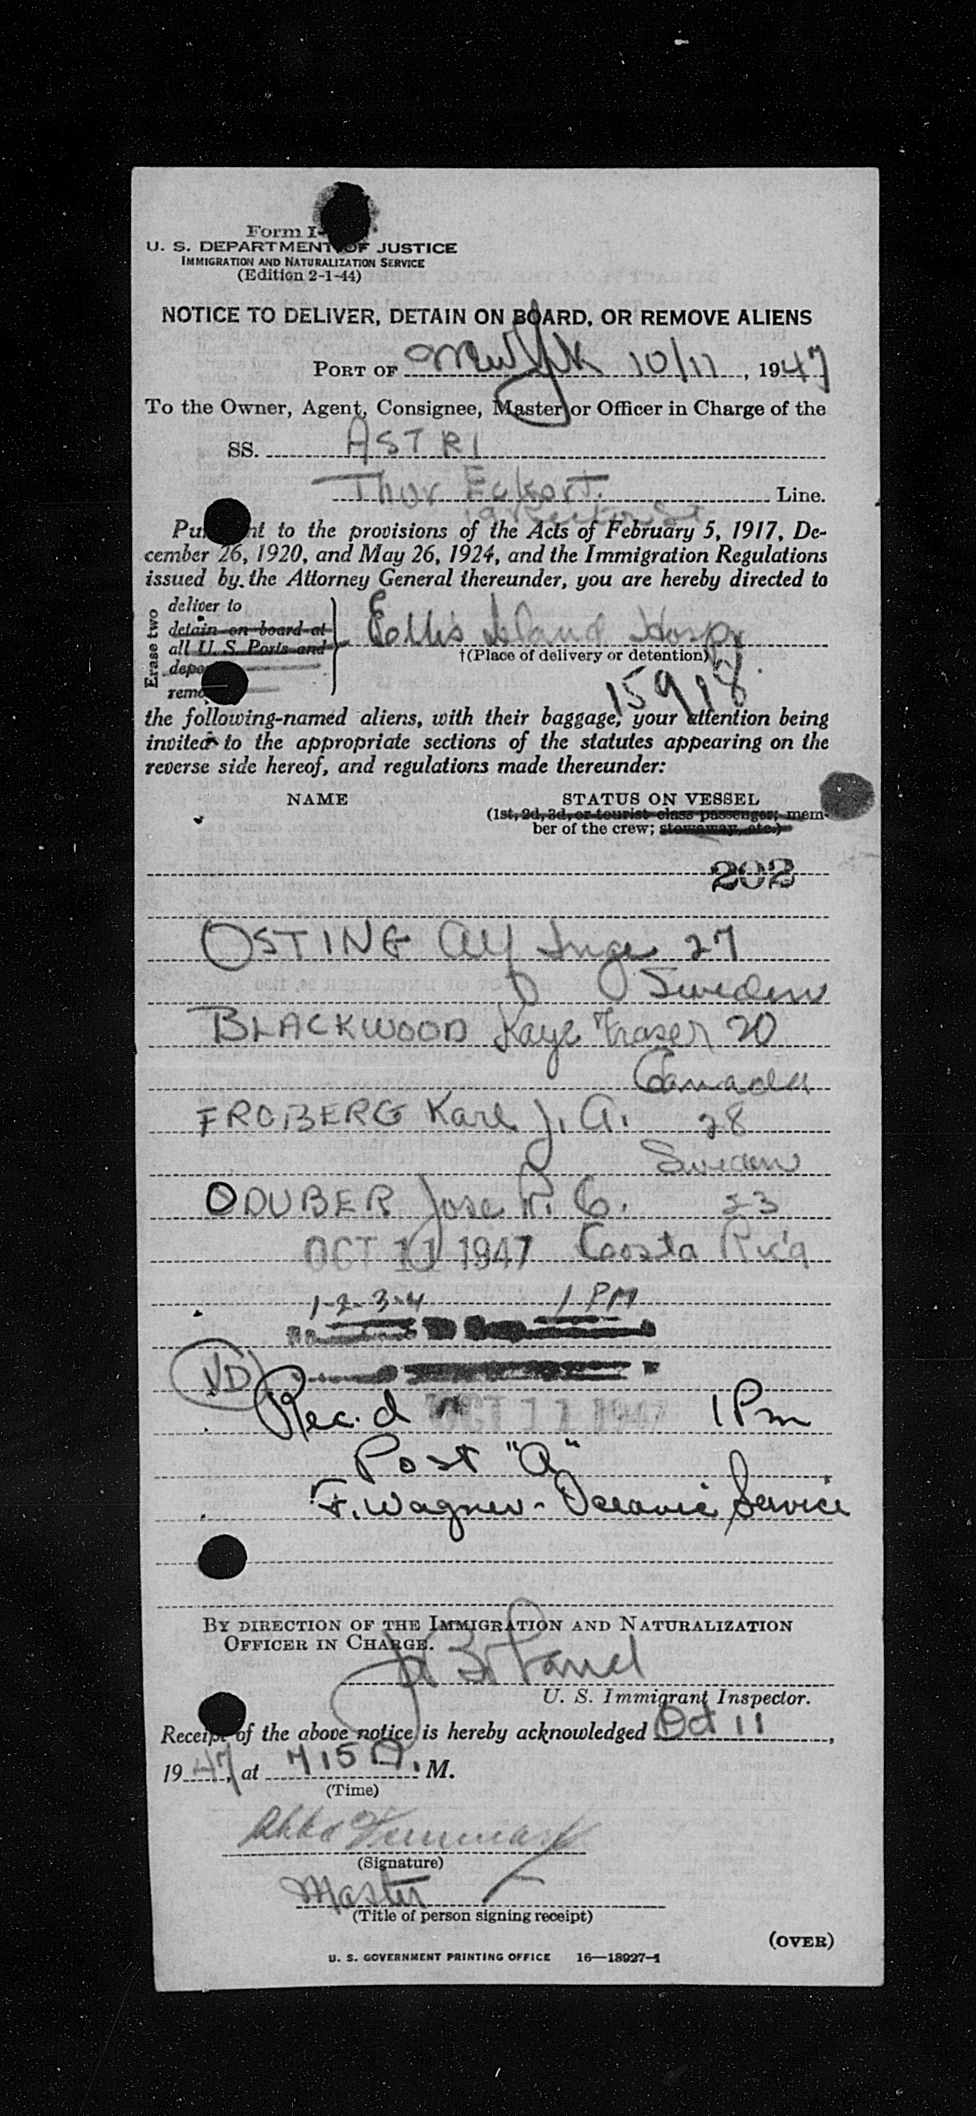 Form I-
U. S. DEPARTMENT OF JUSTICE
IMMIGRATION AND NATURALIZATION SERVICE
(Edition 2-1-44)
NOTICE TO DELIVER, DETAIN ON BOARD, OR REMOVE ALIENS
PORT OF New York 10/11, 1947
To the Owner, Agent, Consignee, Master or Officer in Charge of the
SS. ASTRI
Thor Eckert. Line.
Pursuant to the provisions of the Acts of February 5, 1917, De-
cember 26, 1920, and May 26, 1924, and the Immigration Regulations
issued by the Attorney General thereunder, you are hereby directed to
Erase two
deliver to
detain on board at
all U. S. Ports and
Ellis Island Hosp
†(Place of delivery or detention)
15918
the following-named aliens, with their baggage, your attention being
invited to the appropriate sections of the statutes appearing on the
reverse side hereof, and regulations made thereunder:
NAME STATUS ON VESSEL
(1st, 2d, 3d, or tourist class passenger; mem-
ber of the crew; stowaway, etc.)
202
OSTING Alf Inge 27
Sweden
BLACKWOOD Kaye Fraser 20
Canada
FROBERG Karl J. A. 28
Sweden
ODUBER Jose R. C. 23
OCT 11 1947 Costa Rica
1-2-3-4 1 PM
VD
Rec.d OCT 11 1947 1 Pm
Post "A"
F. Wagner - Oceanic Service
BY DIRECTION OF THE IMMIGRATION AND NATURALIZATION
OFFICER IN CHARGE.
U. S. Immigrant Inspector.
Receipt of the above notice is hereby acknowledged Oct 11,
1947, at 715 A. M.
(Time)
(Signature)
Master
(Title of person signing receipt)
(OVER)
U. S. GOVERNMENT PRINTING OFFICE 16—18927-1